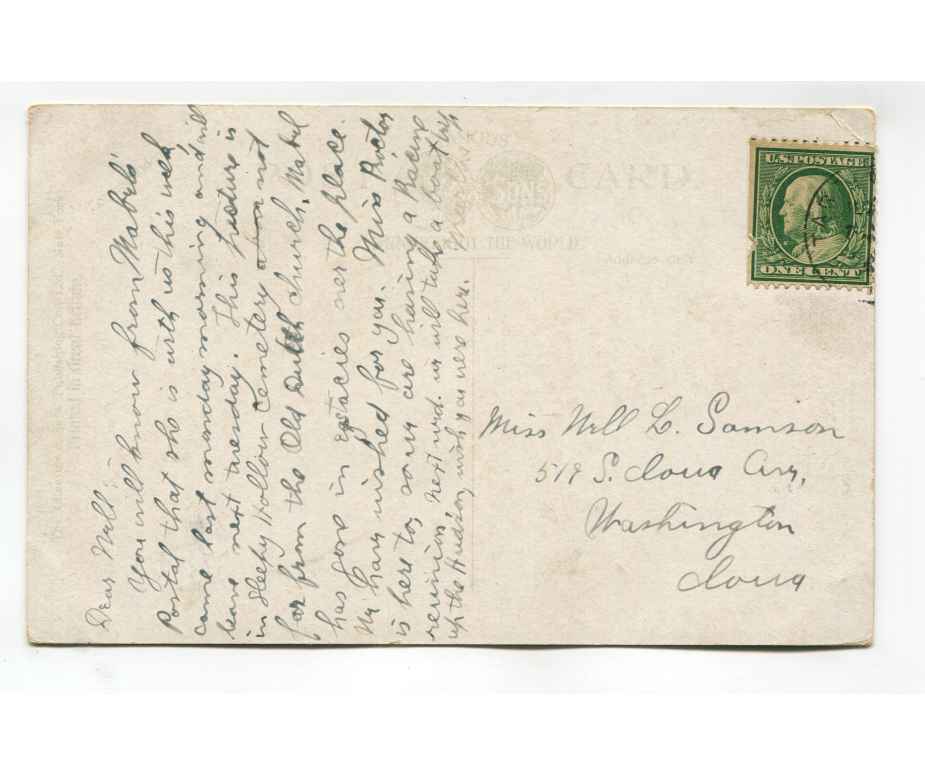 Dear Nell:
You will know from Mabel's
Postal that she is with us this week
came last monday morning and will
leave next tuesday. This picture is
in Sleepy Hollow cemetery not
far from the Old Dutch Church. Mabel
has gone in over the place.
We have wished for you. Miss Proctor
is here too, we are having a Racine
reunion. Next wed. we will take a boat trip
up the Hudson, wish you were here.
CARD.
THE WORLD
U.S. POSTAGE
ONE CENT
Miss Nell L. Samson
519 S. Iowa Ave,
Washington
Iowa